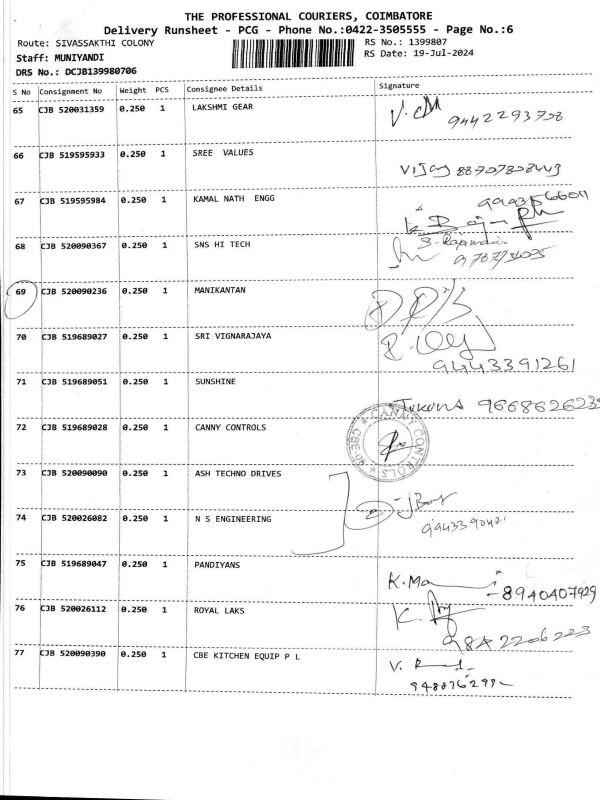 THE PROFESSIONAL COURIERS, COIMBATORE
Delivery Runsheet - PCG - Phone No.:0422-3505555 - Page No.:6
Route: SIVASSAKTHI COLONY RS No.: 1399807
Staff: MUNIYANDI RS Date: 19-Jul-2024
DRS No.: DCJB139980706
S No Consignment No Weight PCS Consignee Details Signature
65 CJB 520031359 0.250 1 LAKSHMI GEAR
9442293708
66 CJB 519595933 0.250 1 SREE VALUES
Vijay
67 CJB 519595984 0.250 1 KAMAL NATH ENGG
68 CJB 520090367 0.250 1 SNS HI TECH
69 CJB 520090236 0.250 1 MANIKANTAN
70 CJB 519689027 0.250 1 SRI VIGNARAJAYA
9443391261
71 CJB 519689051 0.250 1 SUNSHINE
72 CJB 519689028 0.250 1 CANNY CONTROLS
CANNY CONTROLS
73 CJB 520090090 0.250 1 ASH TECHNO DRIVES
74 CJB 520026082 0.250 1 N S ENGINEERING
75 CJB 519689047 0.250 1 PANDIYANS
8940407929
76 CJB 520026112 0.250 1 ROYAL LAKS
77 CJB 520090390 0.250 1 CBE KITCHEN EQUIP P L